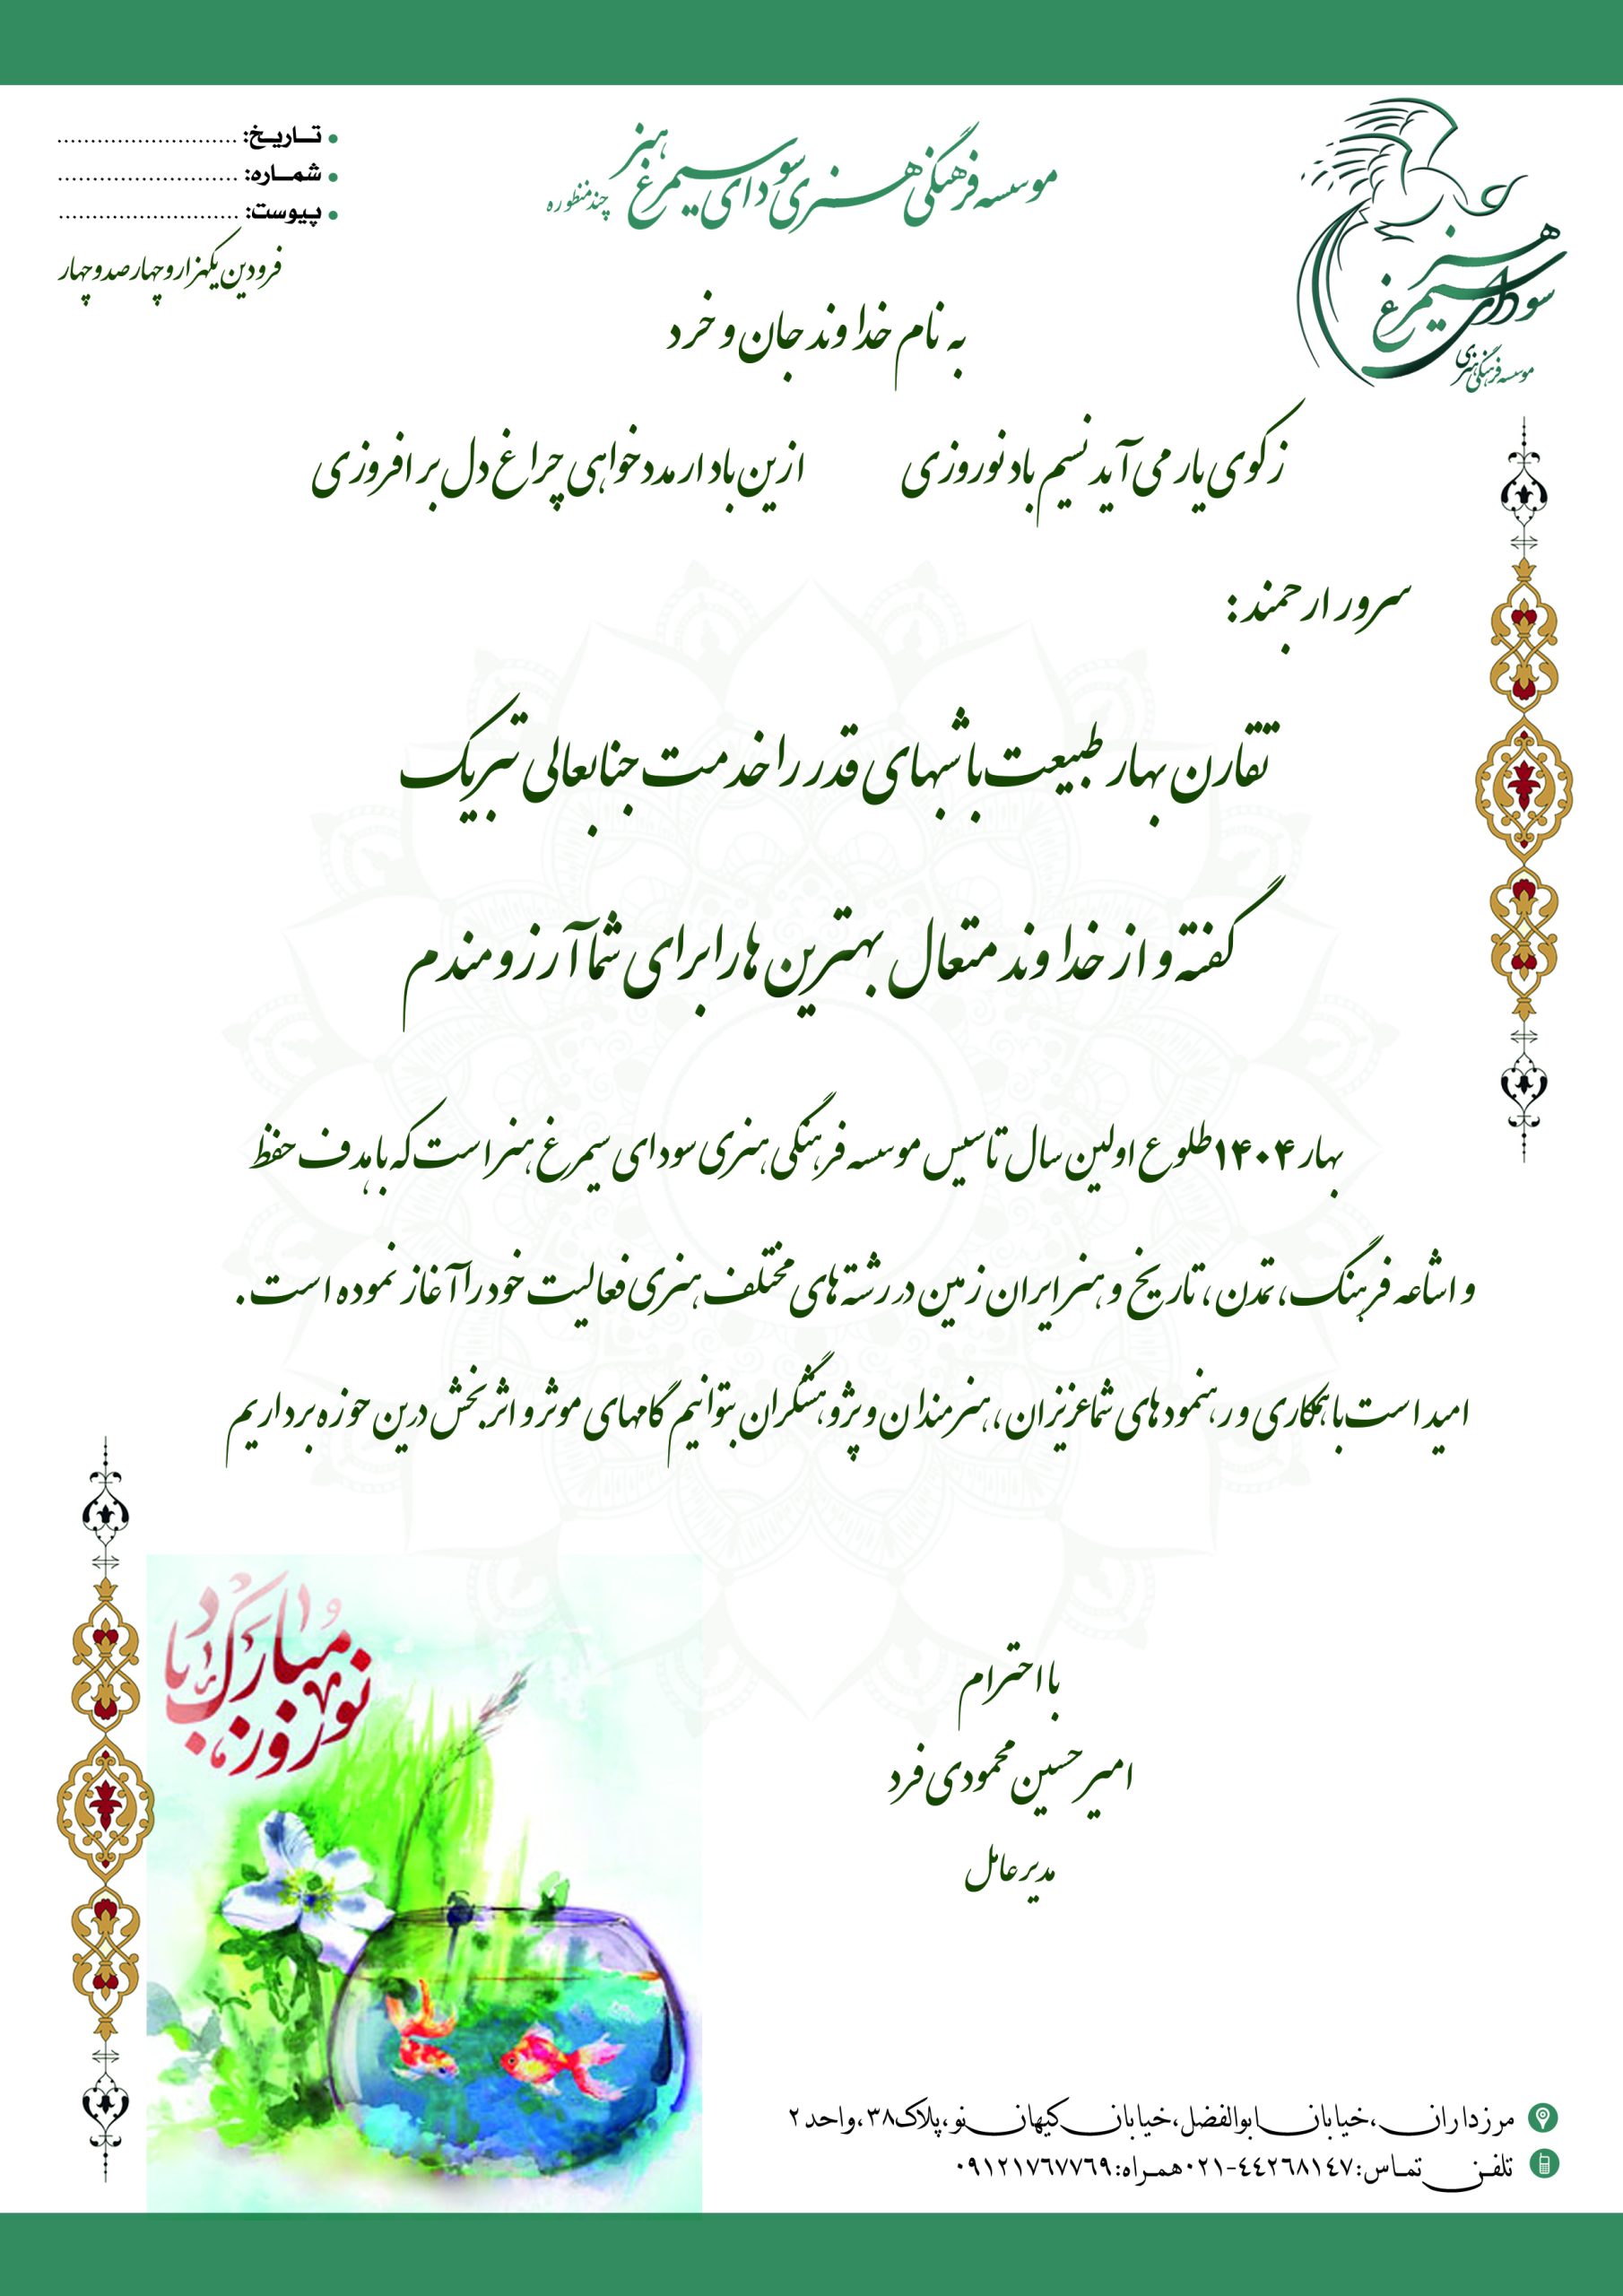 موسسه فرهنگی هنری سودای سیمرغ هنر چند منظوره
سودای سیمرغ هنر
موسسه فرهنگی هنری
تاریخ: ...........................
شماره: ...........................
پیوست: ...........................
فرودین یکهزار و چهار صد و چهار
به نام خداوند جان و خرد
ز کوی یار می آید نسیم باد نوروزی ازین باد ار مدد خواهی چراغ دل بر افروزی
سرور ارجمند:
تقارن بهار طبیعت با شبهای قدر را خدمت جنابعالی تبریک
گفته و از خداوند متعال بهترین ها را برای شما آرزومندم
بهار ۱۴۰۴ طلوع اولین سال تاسیس موسسه فرهنگی هنری سودای سیمرغ هنر است که با هدف حفظ
و اشاعه فرهنگ، تمدن، تاریخ و هنر ایران زمین در رشته های مختلف هنری فعالیت خود را آغاز نموده است.
امید است با همکاری و رهنمودهای شما عزیزان، هنرمندان و پژوهشگران بتوانیم گامهای موثر و اثر بخش درین حوزه برداریم
نوروز مبارک باد
با احترام
امیر حسین محمودی فرد
مدیر عامل
مرزداران، خیابان ابوالفضل، خیابان کیهان نو، پلاک ۳۸، واحد ۲
تلفن تماس: ۰۲۱-۴۴۲۶۸۱۴۷ همراه: ۰۹۱۲۱۷۶۷۷۶۹